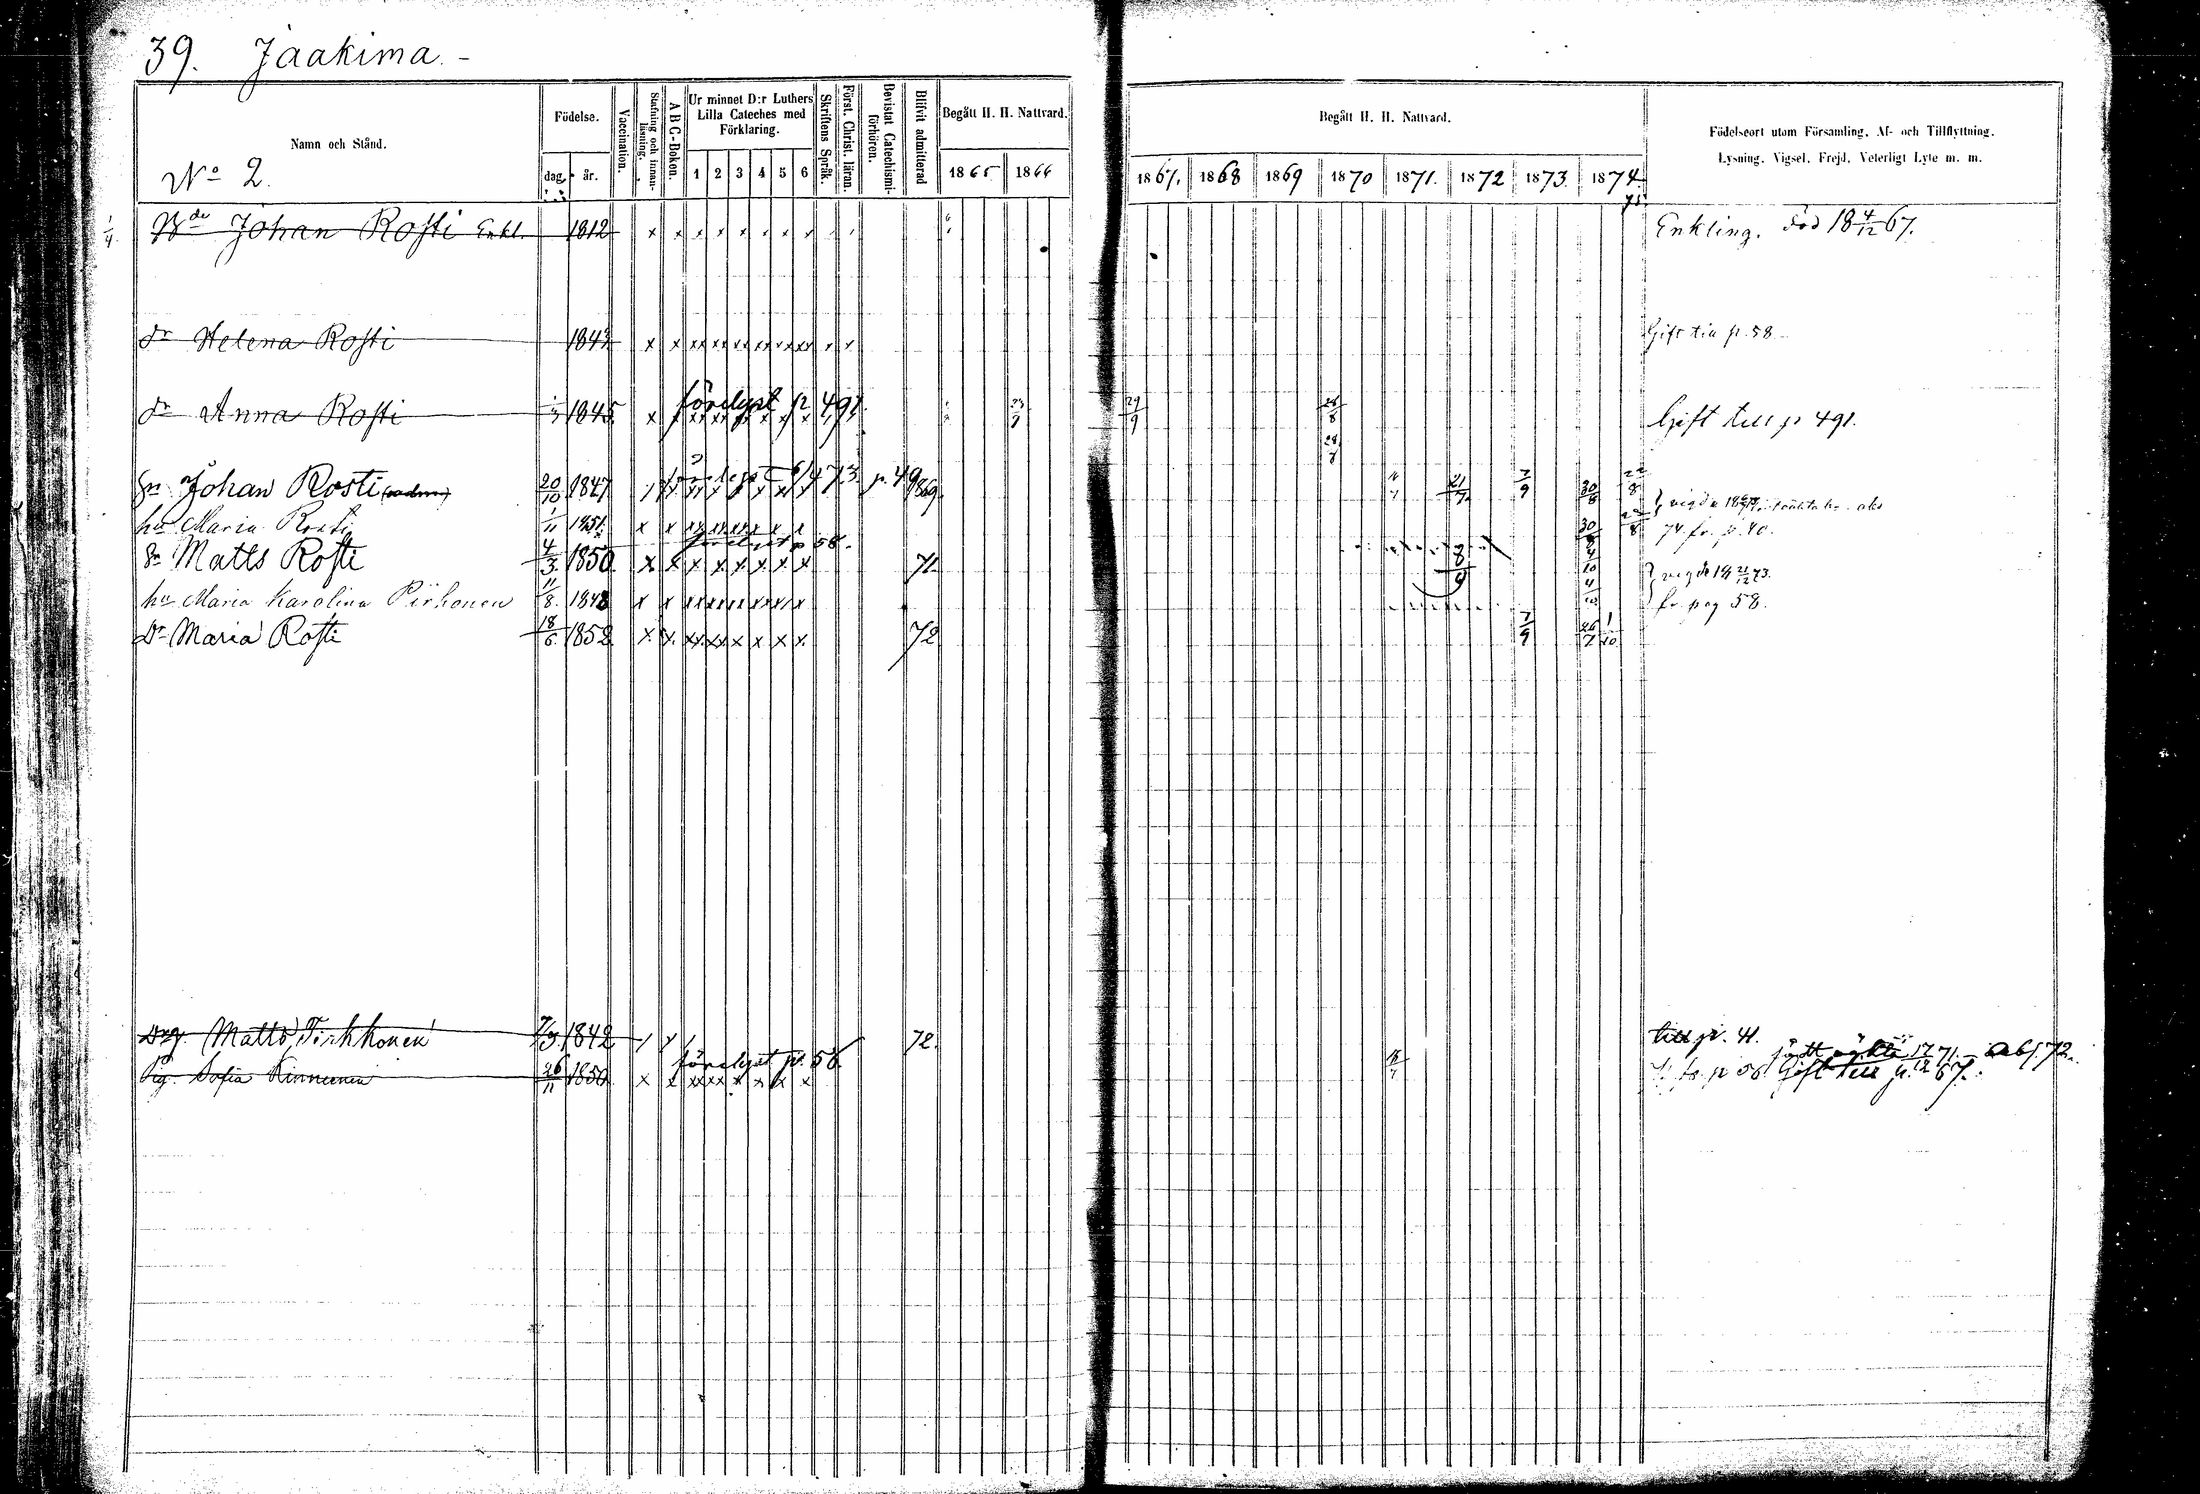 39. Jaakima.
Namn och Stånd.
No 2.
Födelse.
dag. år.
Vaccination.
Stafning och innanläsning.
ABC-Boken.
Ur minnet D:r Luthers Lilla Cateches med Förklaring.
1 2 3 4 5 6
Skriftens Språk.
Först. Christ. läran.
Bevistat Catechismiförhören.
Blifvit admitterad
Begått H. H. Nattvard.
1865 1866
Begått H. H. Nattvard.
1867. 1868 1869 1870 1871. 1872 1873 1874. 75.
Födelseort utom Församling, Af- och Tillflyttning.
Lysning, Vigsel, Frejd, Veterligt Lyte m. m.
Bde Johan Rosti Enkl. 1812 x x x x x x x x Enkling. död 18 4/12 67.
dr Helena Rosti 1843 x x xx xx xx xx xx xx Gift till p. 58
dr Anna Rosti 1845 förelyst p 491. 29/9 28/8 Gift till p 491.
Sn Johan Rosti 20/10 1847 p. 49 1869 21/7 7/9 30/8 22/8
hu Maria Rosti 1/11 1851. x x xx xx xx x x x 30/8 74 fr. p. 40.
Sn Matts Rosti 4/3 1850 förelyst p 58. x x x x x x x x 71. 8/9 4/10
hu Maria Karolina Pirhonen 11/8. 1848 x x 4/10 vigde 18 21/12 73. fr. pag 58.
Dr Maria Rosti 18/6. 1852 x x xx xx x x x x 72 7/9 26/7 1/10
Drg. Matts Tirkkonen 7/3 1842 72. till p. 41.
Pig. Sofia Kinnunen 26/11 1850 förelyst p. 56. x x xx xx x x x x Gift till p. 67.